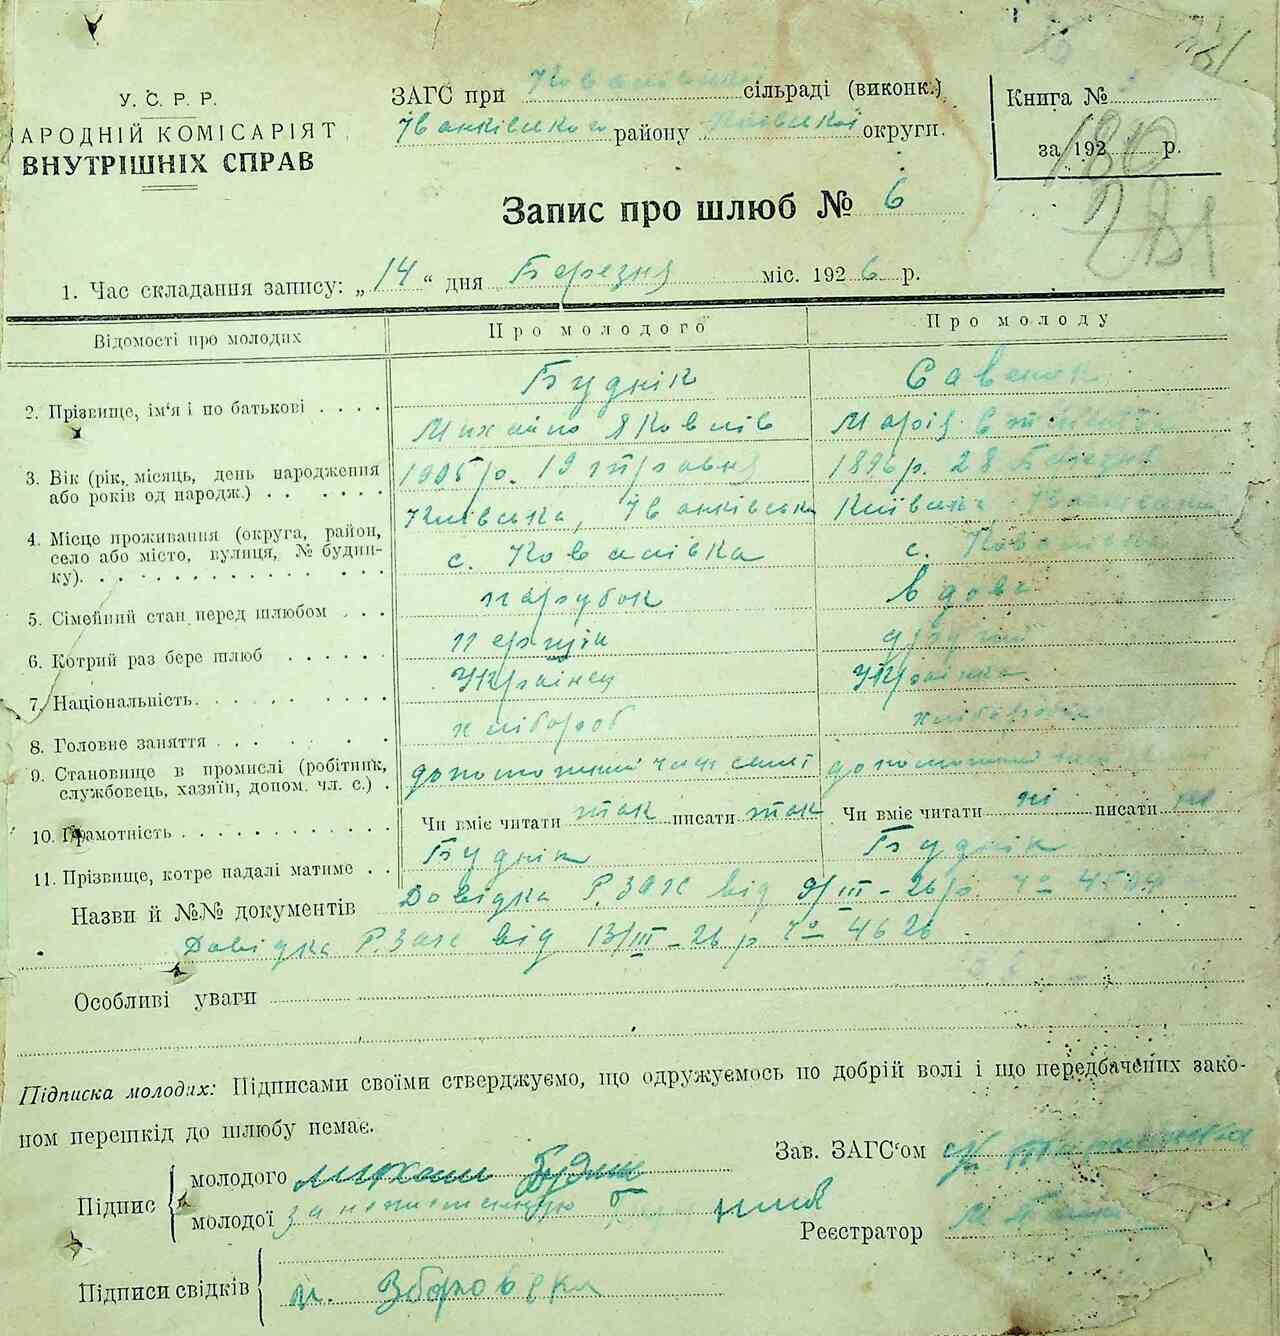 У. С. Р. Р.
АРОДНІЙ КОМІСАРІЯТ
ВНУТРІШНІХ СПРАВ
ЗАГС при сільраді (виконк.)
Іванківського району Київської округи.
Книга №
за 192 р.
180
281
Запис про шлюб № 6
1. Час складання запису: „14“ дня Березня міс. 1926 р.
Відомості про молодих Про молодого Про молоду
2. Прізвище, ім‘я і по батькові . . . . Буднік Савенок
Михайло Яковлів Марія
3. Вік (рік, місяць, день народження або років од народж.) . . . . . . 1905 р. 19 травня 1896 р. 28 Березня
4. Місце проживання (округа, район, село або місто, вулиця, № будинку). Київська, Іванківськ Київська Іванківська
с. Ковалівка с. Ковалівка
5. Сімейний стан перед шлюбом . . . парубок вдова
6. Котрий раз бере шлюб . . . . . . перший другий
7. Національність. Українец Українка
8. Головне заняття хлібороб
9. Становище в промислі (робітник, службовець, хазяїн, допом. чл. с.) . допоможний член семї допоможний
10. Грамотність Чи вміє читати так писати так Чи вміє читати ні писати ні
11. Прізвище, котре надалі матиме . . Буднік Буднік
Назви й №№ документів Довідка Р. загс від 9/III-26 р.
Довідка Р. загс від 13/III-26 р № 4626
Особливі уваги
Підписка молодих: Підписами своїми стверджуємо, що одружуємось по добрій волі і що передбачених зако-
ном перешкід до шлюбу немає.
Підпис
молодого Михаил Будник
молодої за неписьменную
Зав. ЗАГС‘ом
Реєстратор
Підписи свідків